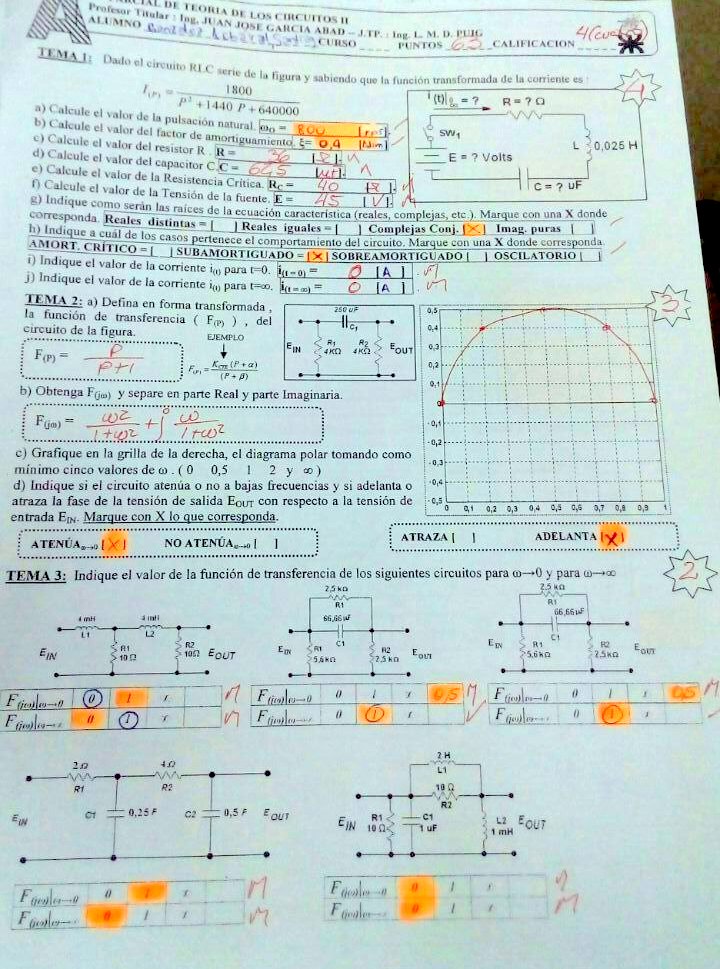 CIAL DE TEORIA DE LOS CIRCUITOS II
Profesor Titular : Ing. JUAN JOSE GARCIA ABAD – J.T.P. : Ing. L. M. D. PUIG
ALUMNO CURSO PUNTOS 63 CALIFICACION 4
TEMA 1: Dado el circuito RLC serie de la figura y sabiendo que la función transformada de la corriente es :
I(P) = 1800 / P² + 1440 P + 640000
a) Calcule el valor de la pulsación natural. ω0 = 800 [rps].
b) Calcule el valor del factor de amortiguamiento. ξ = 0,9 [Adim]
c) Calcule el valor del resistor R . R = 36 [Ω].
d) Calcule el valor del capacitor C. C = 62,5 [μf].
e) Calcule el valor de la Resistencia Crítica. RC = 40 [Ω].
f) Calcule el valor de la Tensión de la fuente. E = 45 [V].
i(t)|0∞ = ? R = ? Ω
SW1
E = ? Volts
L 0,025 H
C = ? uF
4
g) Indique como serán las raíces de la ecuación característica (reales, complejas, etc ). Marque con una X donde
corresponda. Reales distintas = [ ] Reales iguales = [ ] Complejas Conj. [X] Imag. puras [ ]
h) Indique a cuál de los casos pertenece el comportamiento del circuito. Marque con una X donde corresponda.
AMORT. CRÍTICO = [ ] SUBAMORTIGUADO = [X] SOBREAMORTIGUADO [ ] OSCILATORIO [ ]
i) Indique el valor de la corriente i(t) para t=0. i(t = 0) = 0 [A]
j) Indique el valor de la corriente i(t) para t=∞. i(t = ∞) = 0 [A]
TEMA 2: a) Defina en forma transformada ,
la función de transferencia ( F(P) ) , del
circuito de la figura.
EJEMPLO
F(P) = P / P+1
F(P) = KCTE (P + α) / (P + β)
250 uF
C1
EIN R1 4 KΩ R2 4 KΩ EOUT
3
b) Obtenga F(jω) y separe en parte Real y parte Imaginaria.
F(jω) = ω2 / 1+ω2 + j ω / 1+ω2
c) Grafique en la grilla de la derecha, el diagrama polar tomando como
mínimo cinco valores de ω . ( 0 0,5 1 2 y ∞ )
d) Indique si el circuito atenúa o no a bajas frecuencias y si adelanta o
atraza la fase de la tensión de salida EOUT con respecto a la tensión de
entrada EIN. Marque con X lo que corresponda.
0,5
0,4
0,3
0,2
0,1
0
-0,1
-0,2
-0,3
-0,4
-0,5
0 0,1 0,2 0,3 0,4 0,5 0,6 0,7 0,8 0,9 1
ATENÚAω→0 [X] NO ATENÚAω→0 [ ]
ATRAZA [ ] ADELANTA [X]
TEMA 3: Indique el valor de la función de transferencia de los siguientes circuitos para ω→0 y para ω→∞
2
4 mH L1 4 mH L2
EIN R1 10 Ω R2 10Ω EOUT
2,5 kΩ
R1
66,66 uF
C1
EIN R1 5,6 kΩ R2 2,5 kΩ EOUT
2,5 kΩ
R1
66,66 uF
C1
EIN R1 5,6 kΩ R2 2,5 kΩ EOUT
F(jω)|ω→0 0 1 M
F(jω)|ω→∞ 0 1 M
F(jω)|ω→0 0 1 0,5 M
F(jω)|ω→∞ 0 1
F(jω)|ω→0 0 1 0,5 M
F(jω)|ω→∞ 0 1
2 Ω R1 4 Ω R2
EIN C1 0,25 F C2 0,5 F EOUT
2 H
L1
10 Ω
R2
EIN R1 10 Ω C1 1 uF L2 1 mH EOUT
F(jω)|ω→0 0 1 M
F(jω)|ω→∞ 0 1 M
F(jω)|ω→0 0 1
F(jω)|ω→∞ 0 1 M